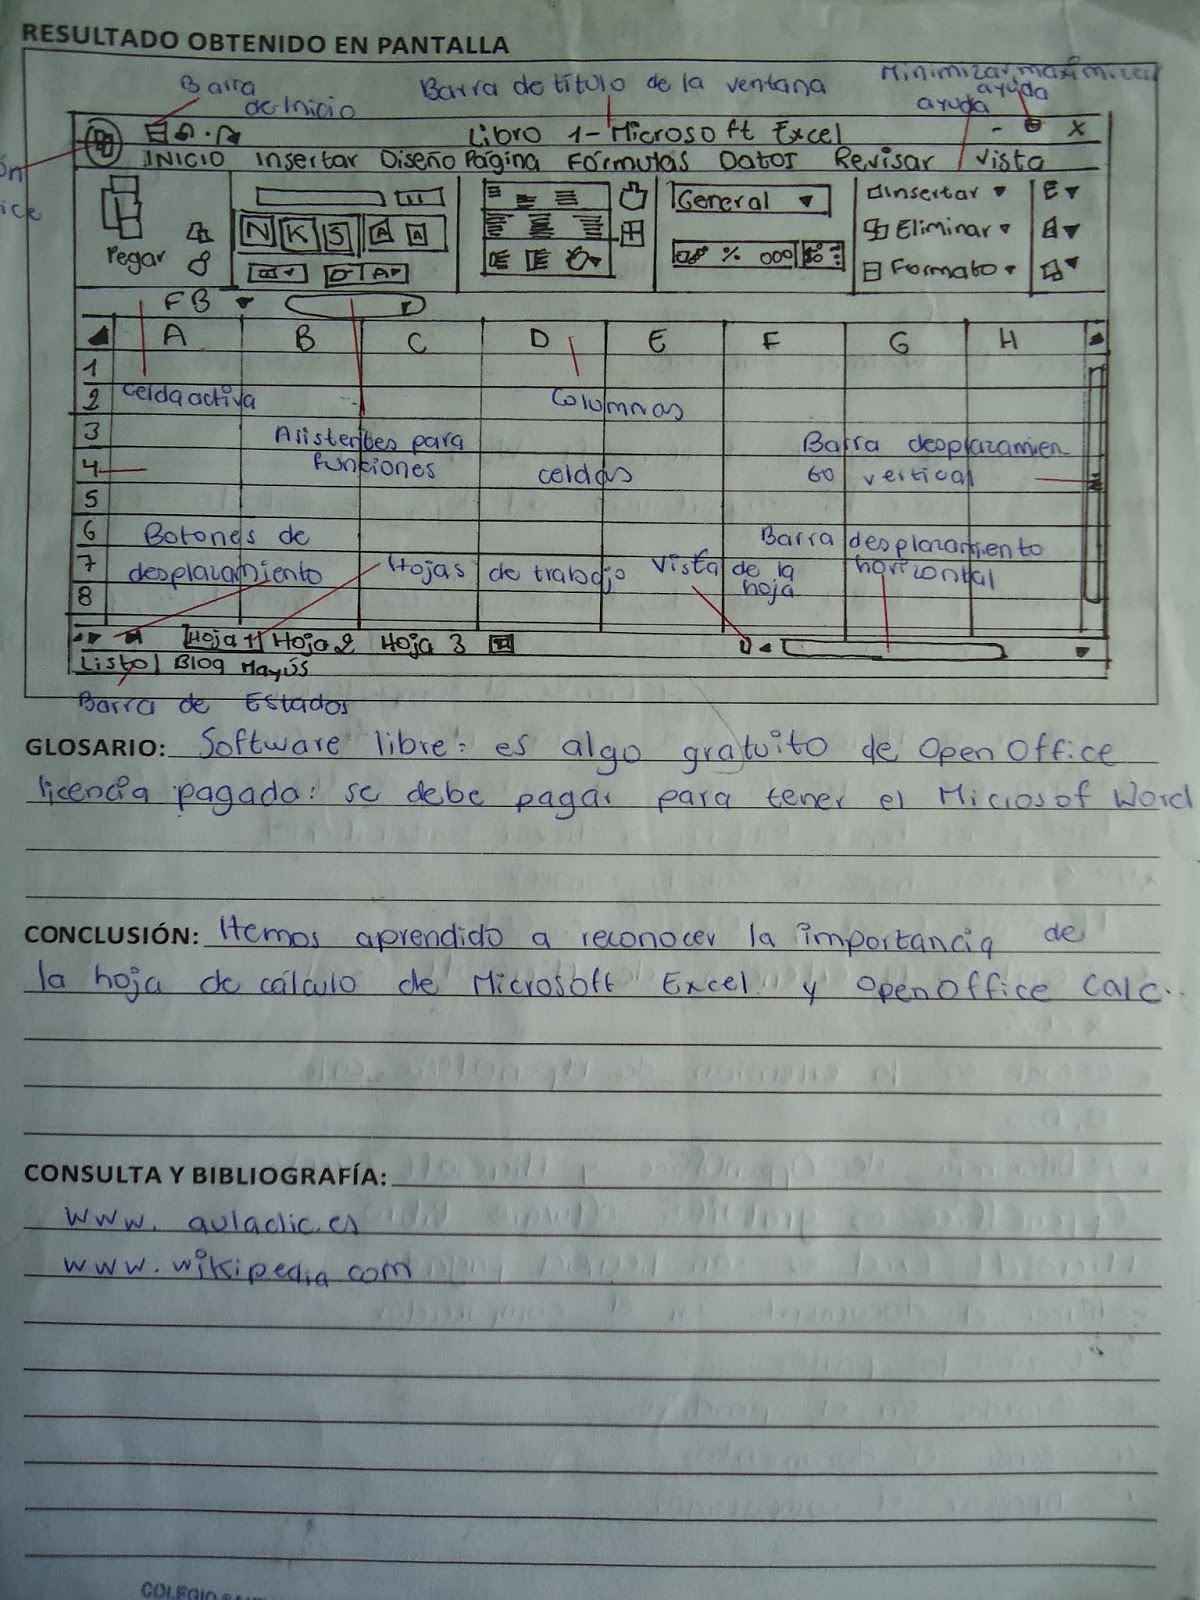 RESULTADO OBTENIDO EN PANTALLA
Barra de Inicio
Barra de título de la ventana
Minimizar, maximizar
ayuda
ayuda
Libro 1 - Microsoft Excel - X
INICIO Insertar Diseño Página Fórmulas Datos Revisar Vista
General Insertar
N K S Eliminar
Pegar % 000 Formato
FB
A B C D E F G H
1
2 Celda activa Columnas
3 Asistentes para Barra desplazamien
4 funciones celdas to vertical
5
6 Botones de Barra desplazamiento
7 desplazamiento Hojas de trabajo Vista de la horizontal
8 hoja
Hoja 1 Hoja 2 Hoja 3
Listo Blog Mayús
Barra de Estados
GLOSARIO: Software libre: es algo gratuito de Open Office
licencia pagada: se debe pagar para tener el Microsof Word
CONCLUSIÓN: Hemos aprendido a reconocer la importancia de
la hoja de cálculo de Microsoft Excel y OpenOffice Calc.
CONSULTA Y BIBLIOGRAFÍA:
www. aulaclic.es
www.wikipedia com
COLEGIO